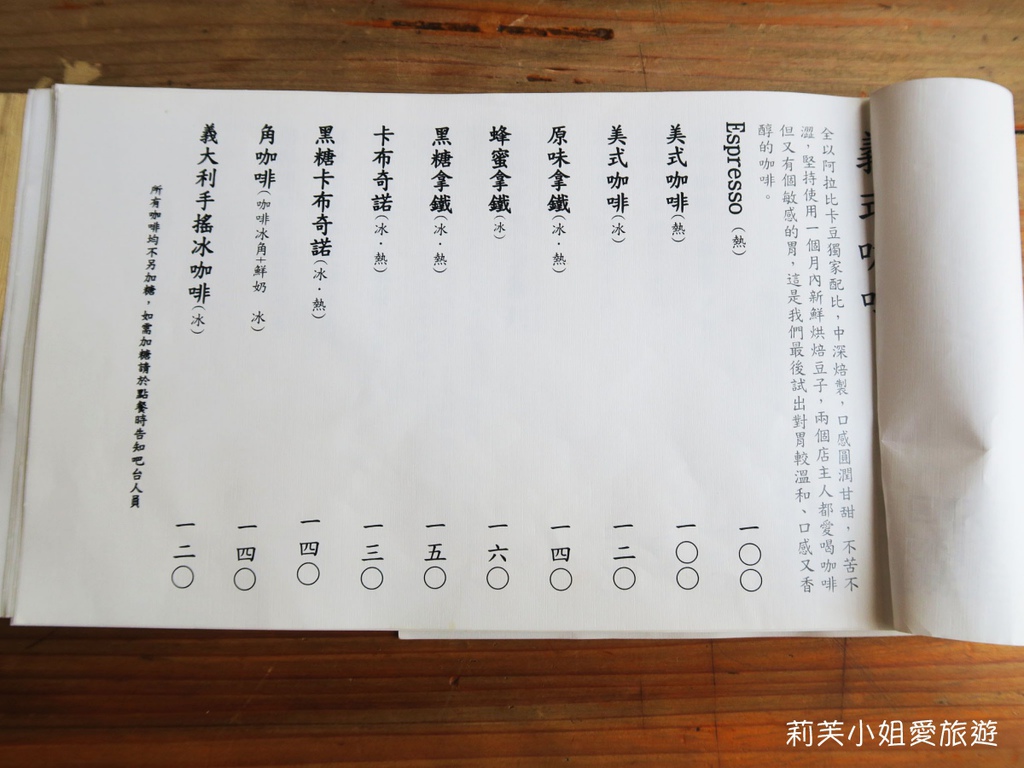 義式咖啡
全以阿拉比卡豆獨家配比，中深焙製，口感圓潤甘甜，不苦不
澀，堅持使用一個月內新鮮烘焙豆子，兩個店主人都愛喝咖啡
但又有個敏感的胃，這是我們最後試出對胃較溫和、口感又香
醇的咖啡。
Espresso（熱） 一〇〇
美式咖啡（熱） 一〇〇
美式咖啡（冰） 一二〇
原味拿鐵（冰．熱） 一四〇
蜂蜜拿鐵（冰） 一六〇
黑糖拿鐵（冰．熱） 一五〇
卡布奇諾（冰．熱） 一三〇
黑糖卡布奇諾（冰．熱） 一四〇
角咖啡（咖啡冰角+鮮奶 冰） 一四〇
義大利手搖冰咖啡（冰） 一二〇
所有咖啡均不另加糖，如需加糖請於點餐時告知吧台人員
莉芙小姐愛旅遊